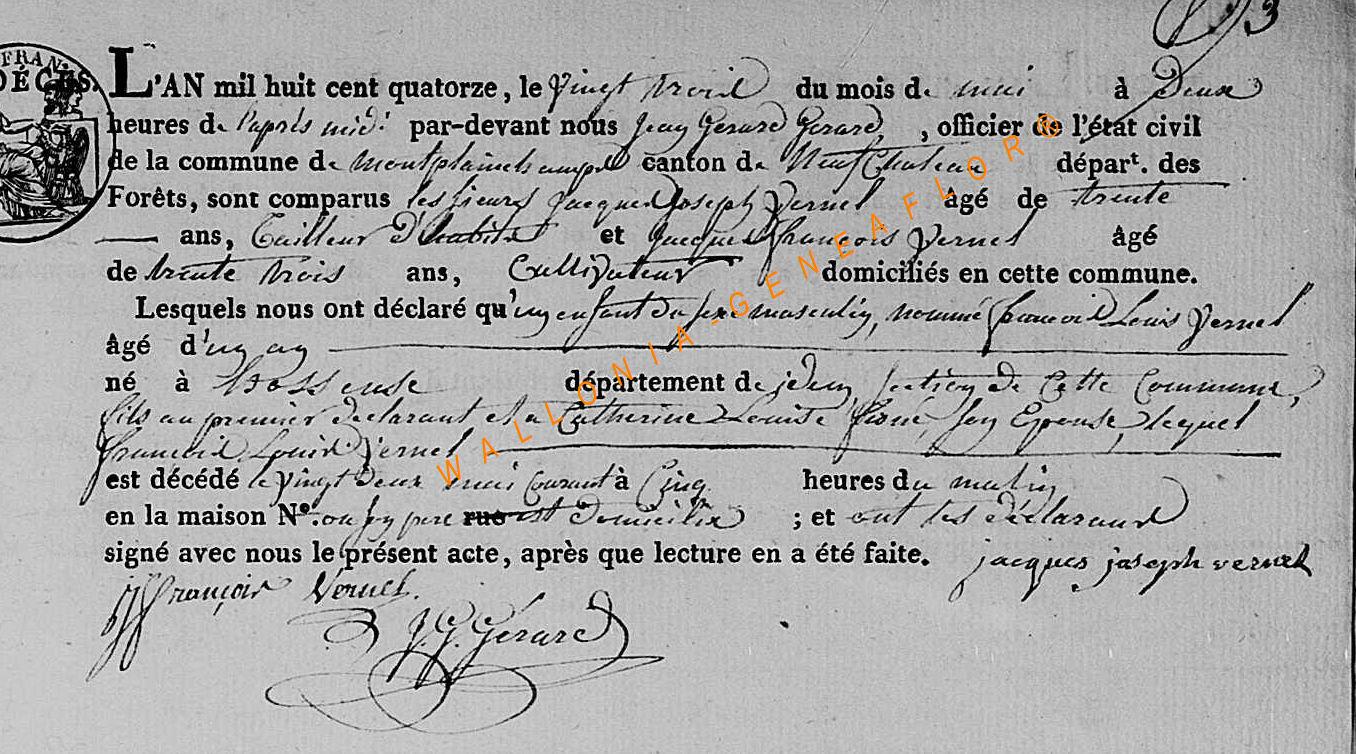 3
FRAN.
DÉCÈS.
L'AN mil huit cent quatorze, le vingt trois du mois de mai à Deux
heures de l'aprés midi par-devant nous Jean Gerard Gerard, , officier de l'état civil
de la commune de montplainchamps canton de Neufchateau départ. des
Forêts, sont comparus les sieurs Jacques Joseph Vernel âgé de trente
ans, Tailleur D'habits et Jacques françois Vernel âgé
de trente trois ans, Cultivateur domiciliés en cette commune.
Lesquels nous ont déclaré qu'un enfant du sexe masculin, nommé françois Louis Vernel
âgé d'un an
né à département de idem section de Cette Commune,
fils au premier declarant et a Catherine Louise son Epouse, lequel
françois Louis Vernel
est décédé le vingt deux mai Courant à Cinq heures du matin
en la maison N°. ou son pere rue est domicilié ; et ont les déclarans
signé avec nous le présent acte, après que lecture en a été faite. jacques joseph vernel
françois Vernel.
J. G. Gérard
WALLONIA-GENEAFLORE